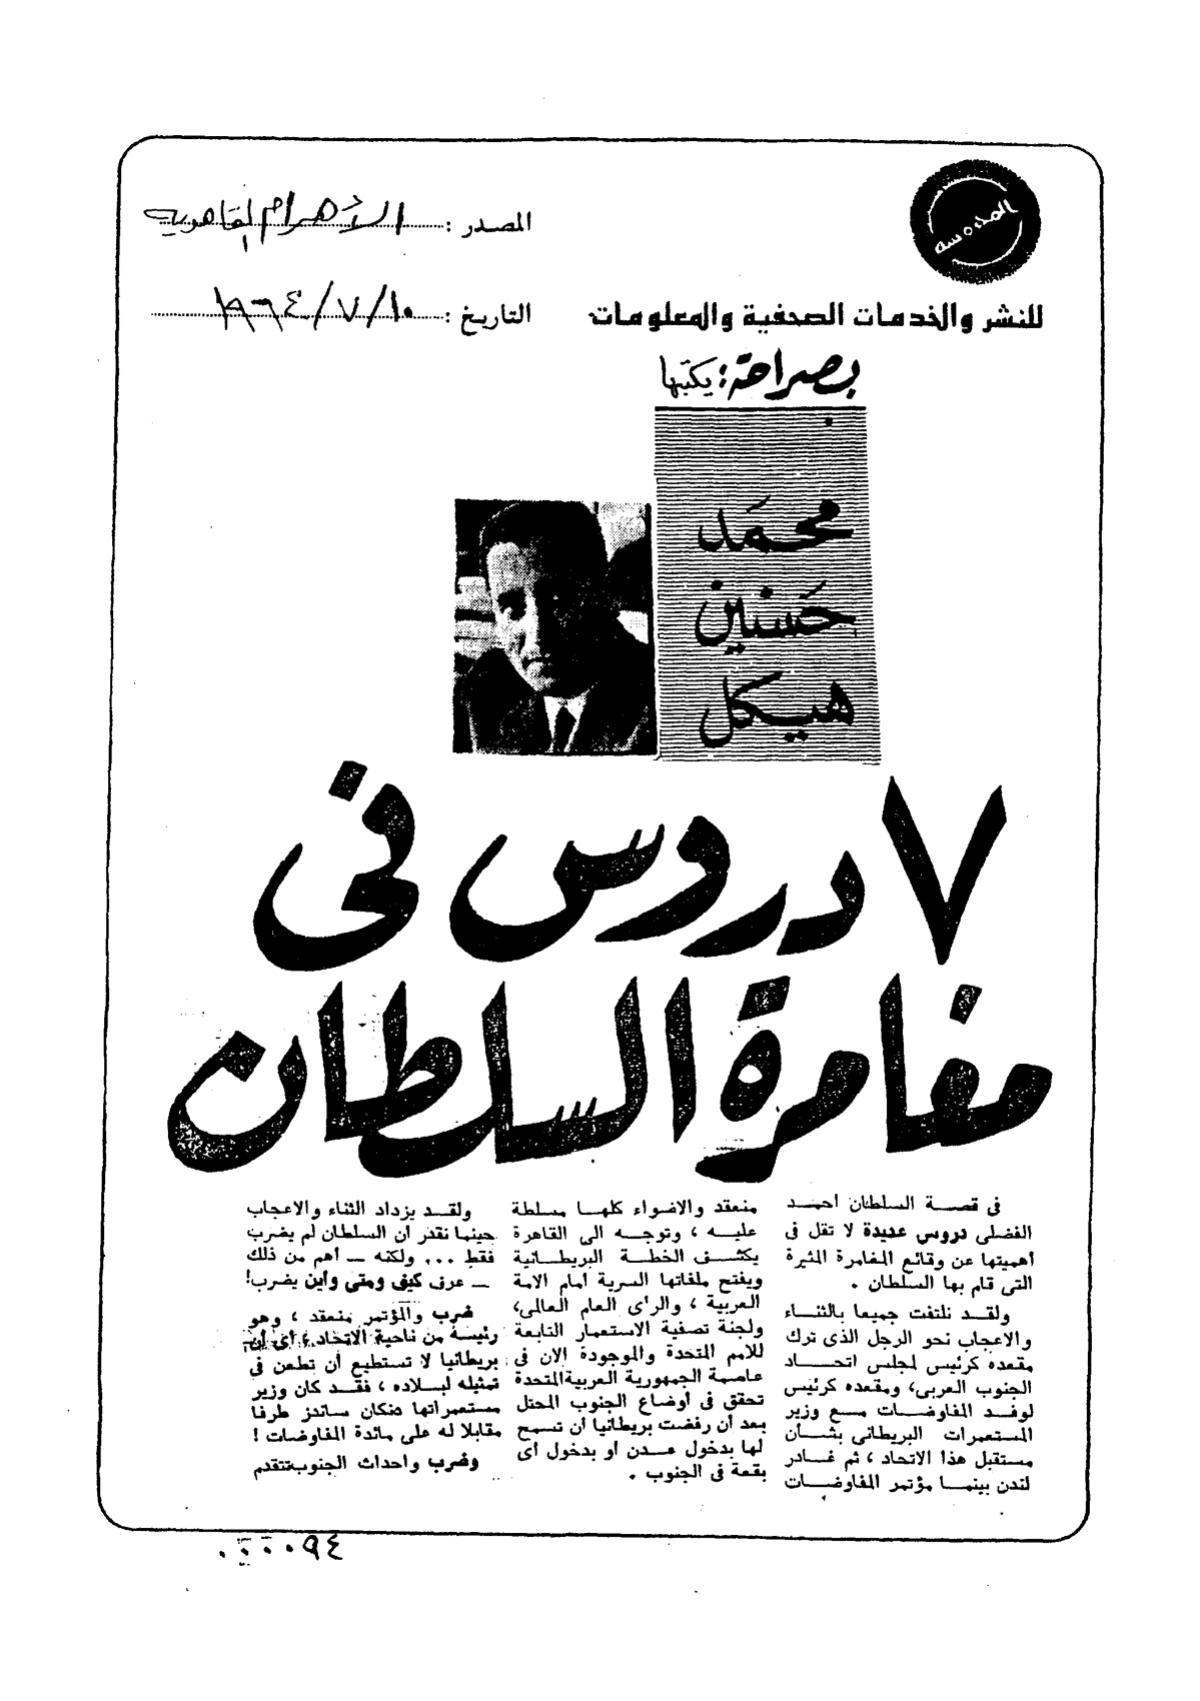 المحروسة
المصدر : الأهرام القاهرية
للنشر والخدمات الصحفية والمعلومات
التاريخ : ١٩٦٤/٧/١٠
بصراحة : يكتبها
محمد
حسنين
هيكل
٧ دروس فى
مغامرة السلطان
فى قصة السلطان احمد
الفضلى دروس عديدة لا تقل فى
أهميتها عن وقائع المغامرة المثيرة
التى قام بها السلطان .
ولقد نلتفت جميعا بالثناء
والاعجاب نحو الرجل الذى ترك
مقعده كرئيس لمجلس اتحاد
الجنوب العربى، ومقعده كرئيس
لوفد المفاوضات مع وزير
المستعمرات البريطانى بشأن
مستقبل هذا الاتحاد ، ثم غادر
لندن بينما مؤتمر المفاوضات
منعقد والاضواء كلها مسلطة
عليه ، وتوجه الى القاهرة
يكشف الخطة البريطانية
ويفتح ملفاتها السرية أمام الامة
العربية ، والرأى العام العالمى،
ولجنة تصفية الاستعمار التابعة
للامم المتحدة والموجودة الان فى
عاصمة الجمهورية العربية المتحدة
تحقق فى أوضاع الجنوب المحتل
بعد أن رفضت بريطانيا أن تسمح
لها بدخول عدن او بدخول اى
بقعة فى الجنوب .
ولقد يزداد الثناء والاعجاب
حينما نقدر أن السلطان لم يضرب
فقط ... ولكنه ــ أهم من ذلك
ــ عرف كيف ومتى وأين يضرب!
ضرب والمؤتمر منعقد ، وهو
رئيسه من ناحية الاتحاد ، أى أن
بريطانيا لا تستطيع أن تطعن فى
تمثيله لبلاده ، فقد كان وزير
مستعمراتها دنكان ساندز طرفا
مقابلا له على مائدة المفاوضات !
وضرب واحداث الجنوب تتقدم